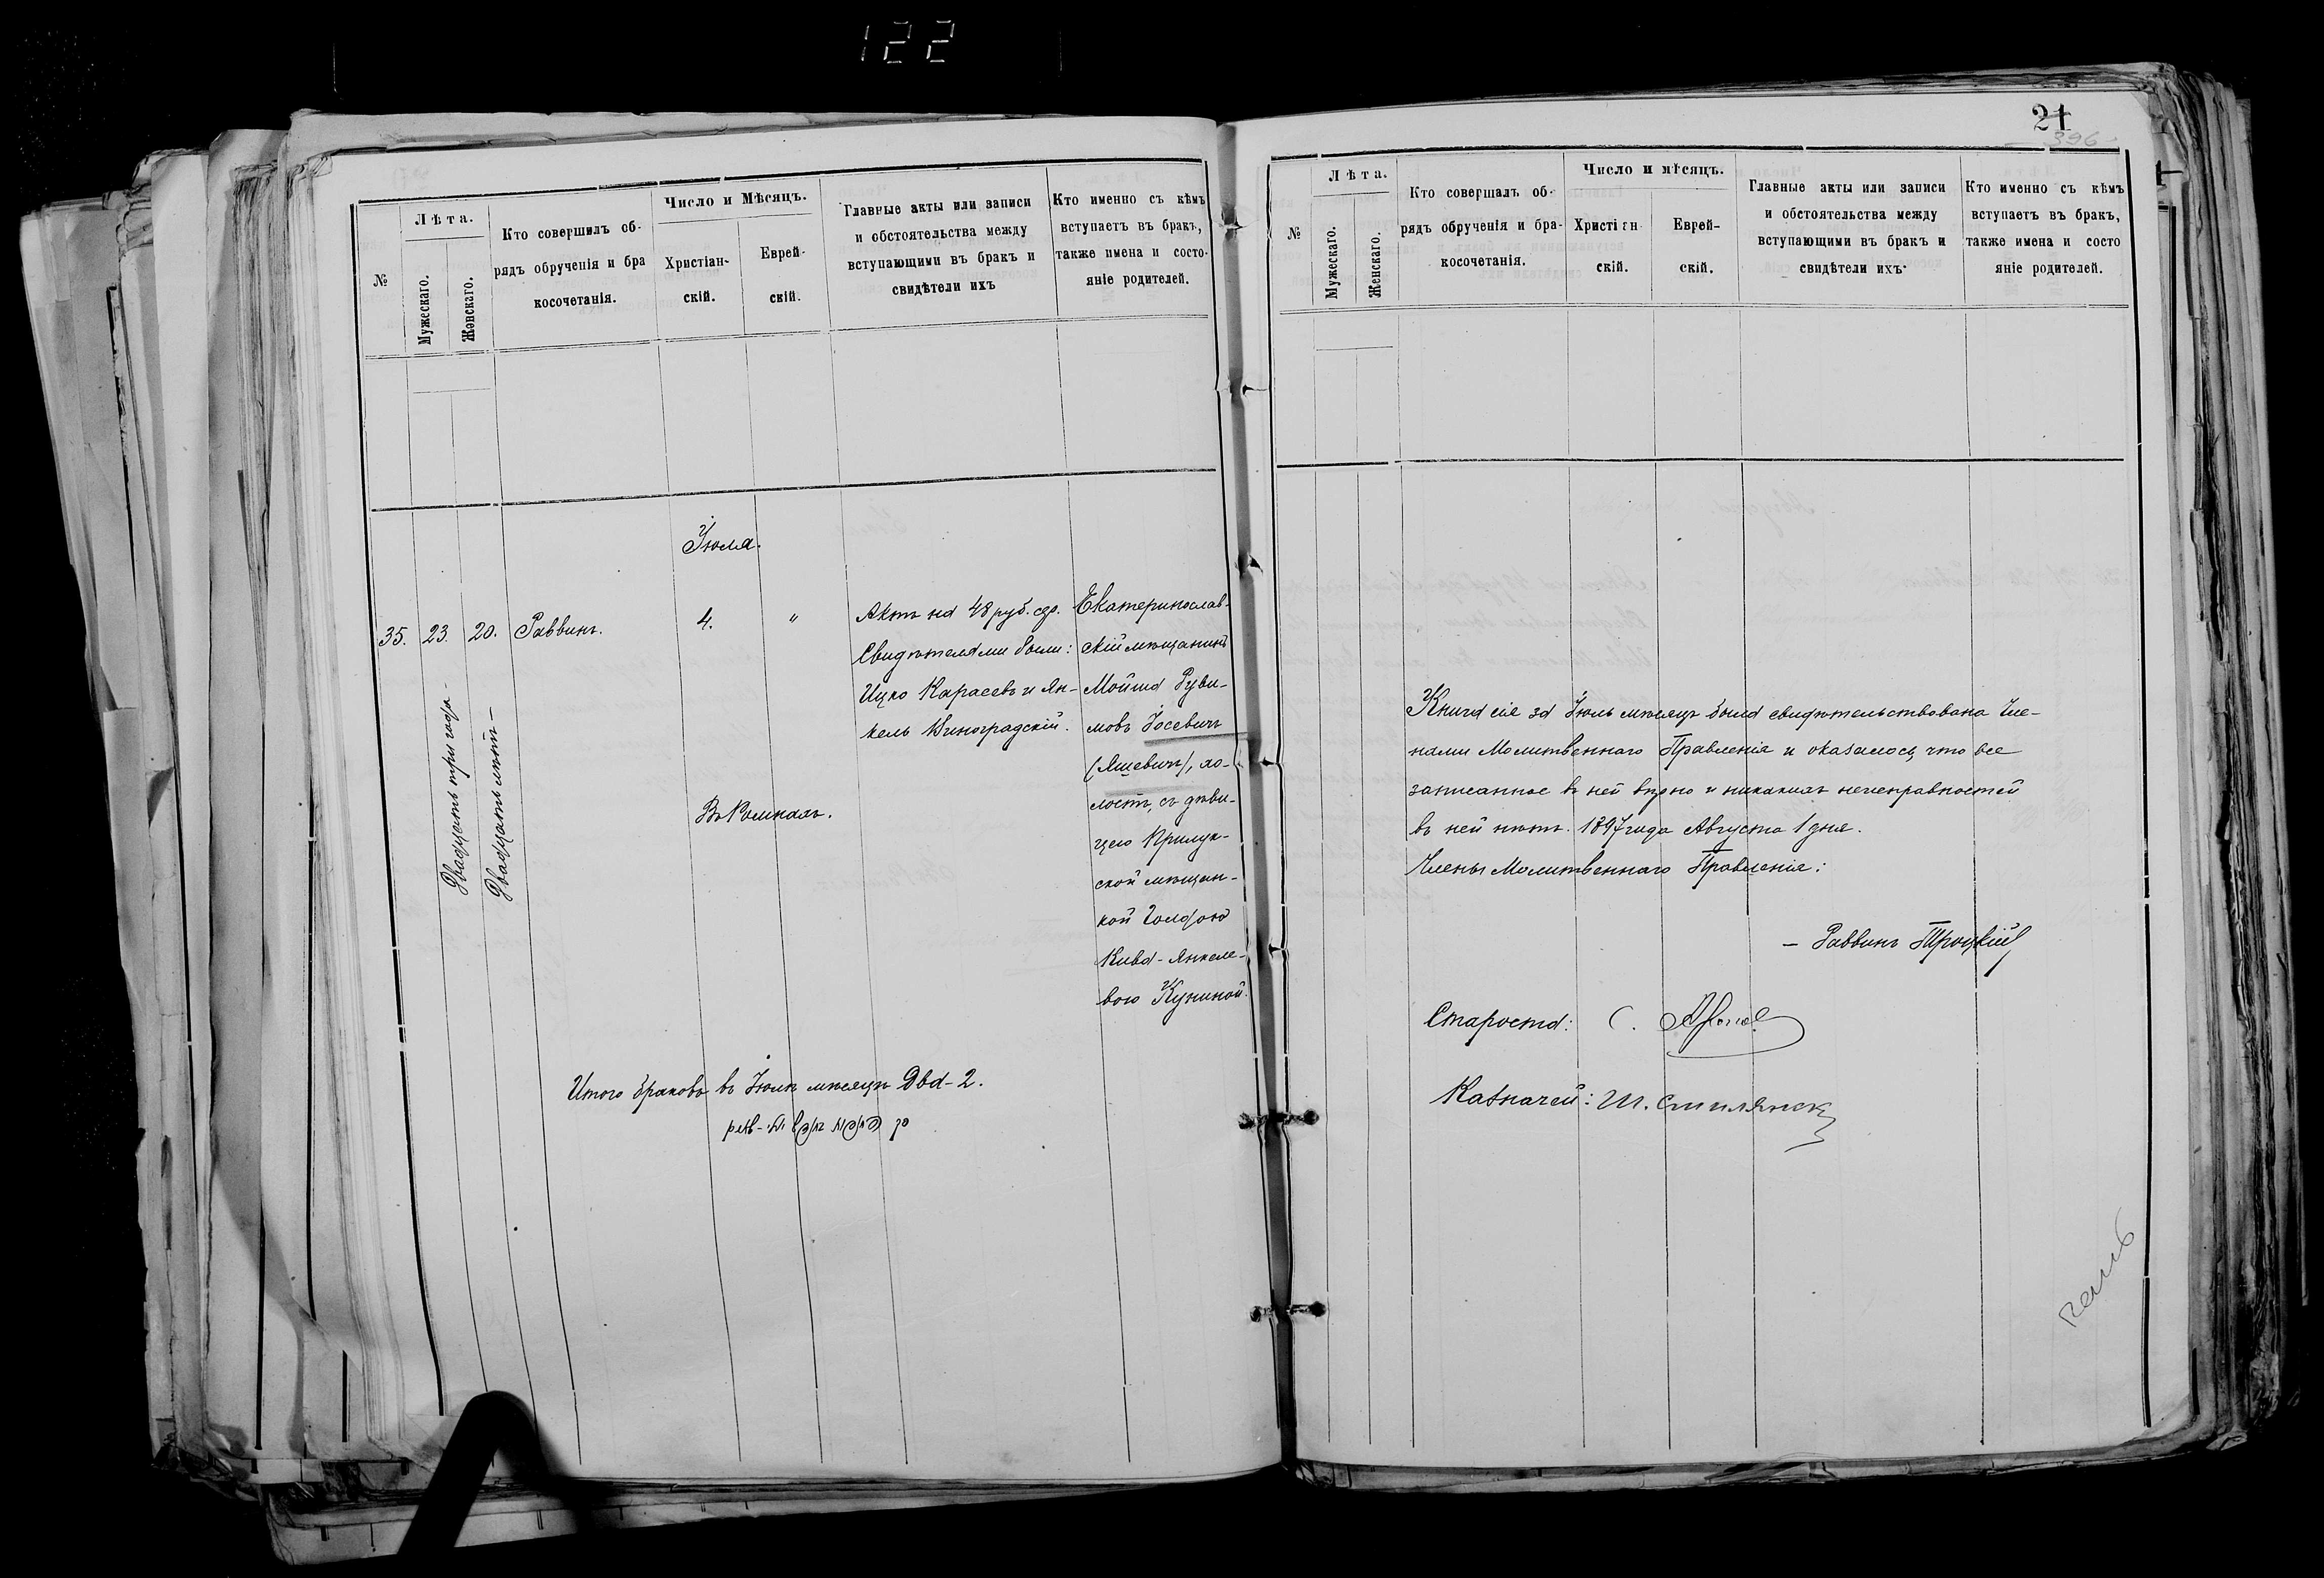 122
№
Лѣта.
Мужескаго.
Женскаго.
Кто совершилъ об-
рядъ обрученія и бра
косочетанія.
Число и Мѣсяцъ.
Христіан-
скій.
Еврей-
скій.
Главные акты или записи
и обстоятельства между
вступающими въ бракъ и
свидѣтели ихъ
Кто именно съ кѣмъ
вступаетъ въ бракъ,
также имена и состо-
яніе родителей.
Іюля.
35.
23.
20.
Двадцать три года
Двадцать лѣтъ
Раввинъ.
4.
"
Въ Ромнахъ.
Актъ на 48 руб. сер.
Свидѣтелями были:
Ицко Карасевъ и Ян-
кель Виноградскій.
Екатеринослав-
скій мѣщанинъ
Мойша Руви-
мовъ Іосевичъ
(Яшевичъ), хо-
лостъ, съ дѣви-
цею Прилук-
ской мѣщан-
кой Голдою
Кива-Янкеле-
вою Куниной.
Итого браковъ въ Іюлѣ мѣсяцѣ два-2.
21
396
№
Лѣта.
Мужескаго.
Женскаго.
Кто совершалъ об-
рядъ обрученія и бра-
косочетанія.
Число и мѣсяцъ.
Христіан
скій.
Еврей-
скій.
Главные акты или записи
и обстоятельства между
вступающими въ бракъ и
свидѣтели ихъ
Кто именно съ кѣмъ
вступаетъ въ бракъ,
также имена и состо
яніе родителей.
Книга сія за Іюль мѣсяцъ была свидѣтельствована Чле-
нами Молитвеннаго Правленія и оказалось, что все
записанное въ ней вѣрно и никакихъ неисправностей
въ ней нѣтъ. 1897 года Августа 1 дня.
Члены Молитвеннаго Правленія:
– Раввинъ Троцкій
Староста: С.
Казначей: Ш. Смилянск